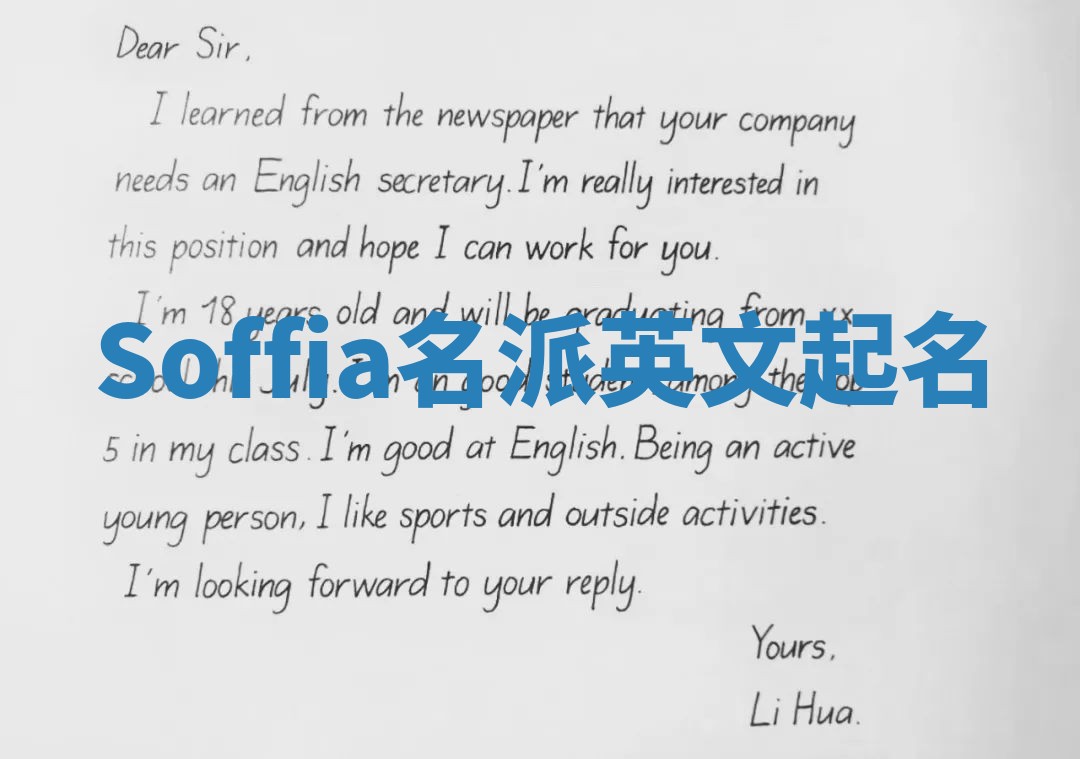 Dear Sir,
I learned from the newspaper that your company
needs an English secretary. I'm really interested in
this position and hope I can work for you.
I'm 18 years old and will be graduating from xx
Soffia名派英文起名
July. I'm an good student among the top
5 in my class. I'm good at English. Being an active
young person, I like sports and outside activities.
I'm looking forward to your reply.
Yours,
Li Hua.